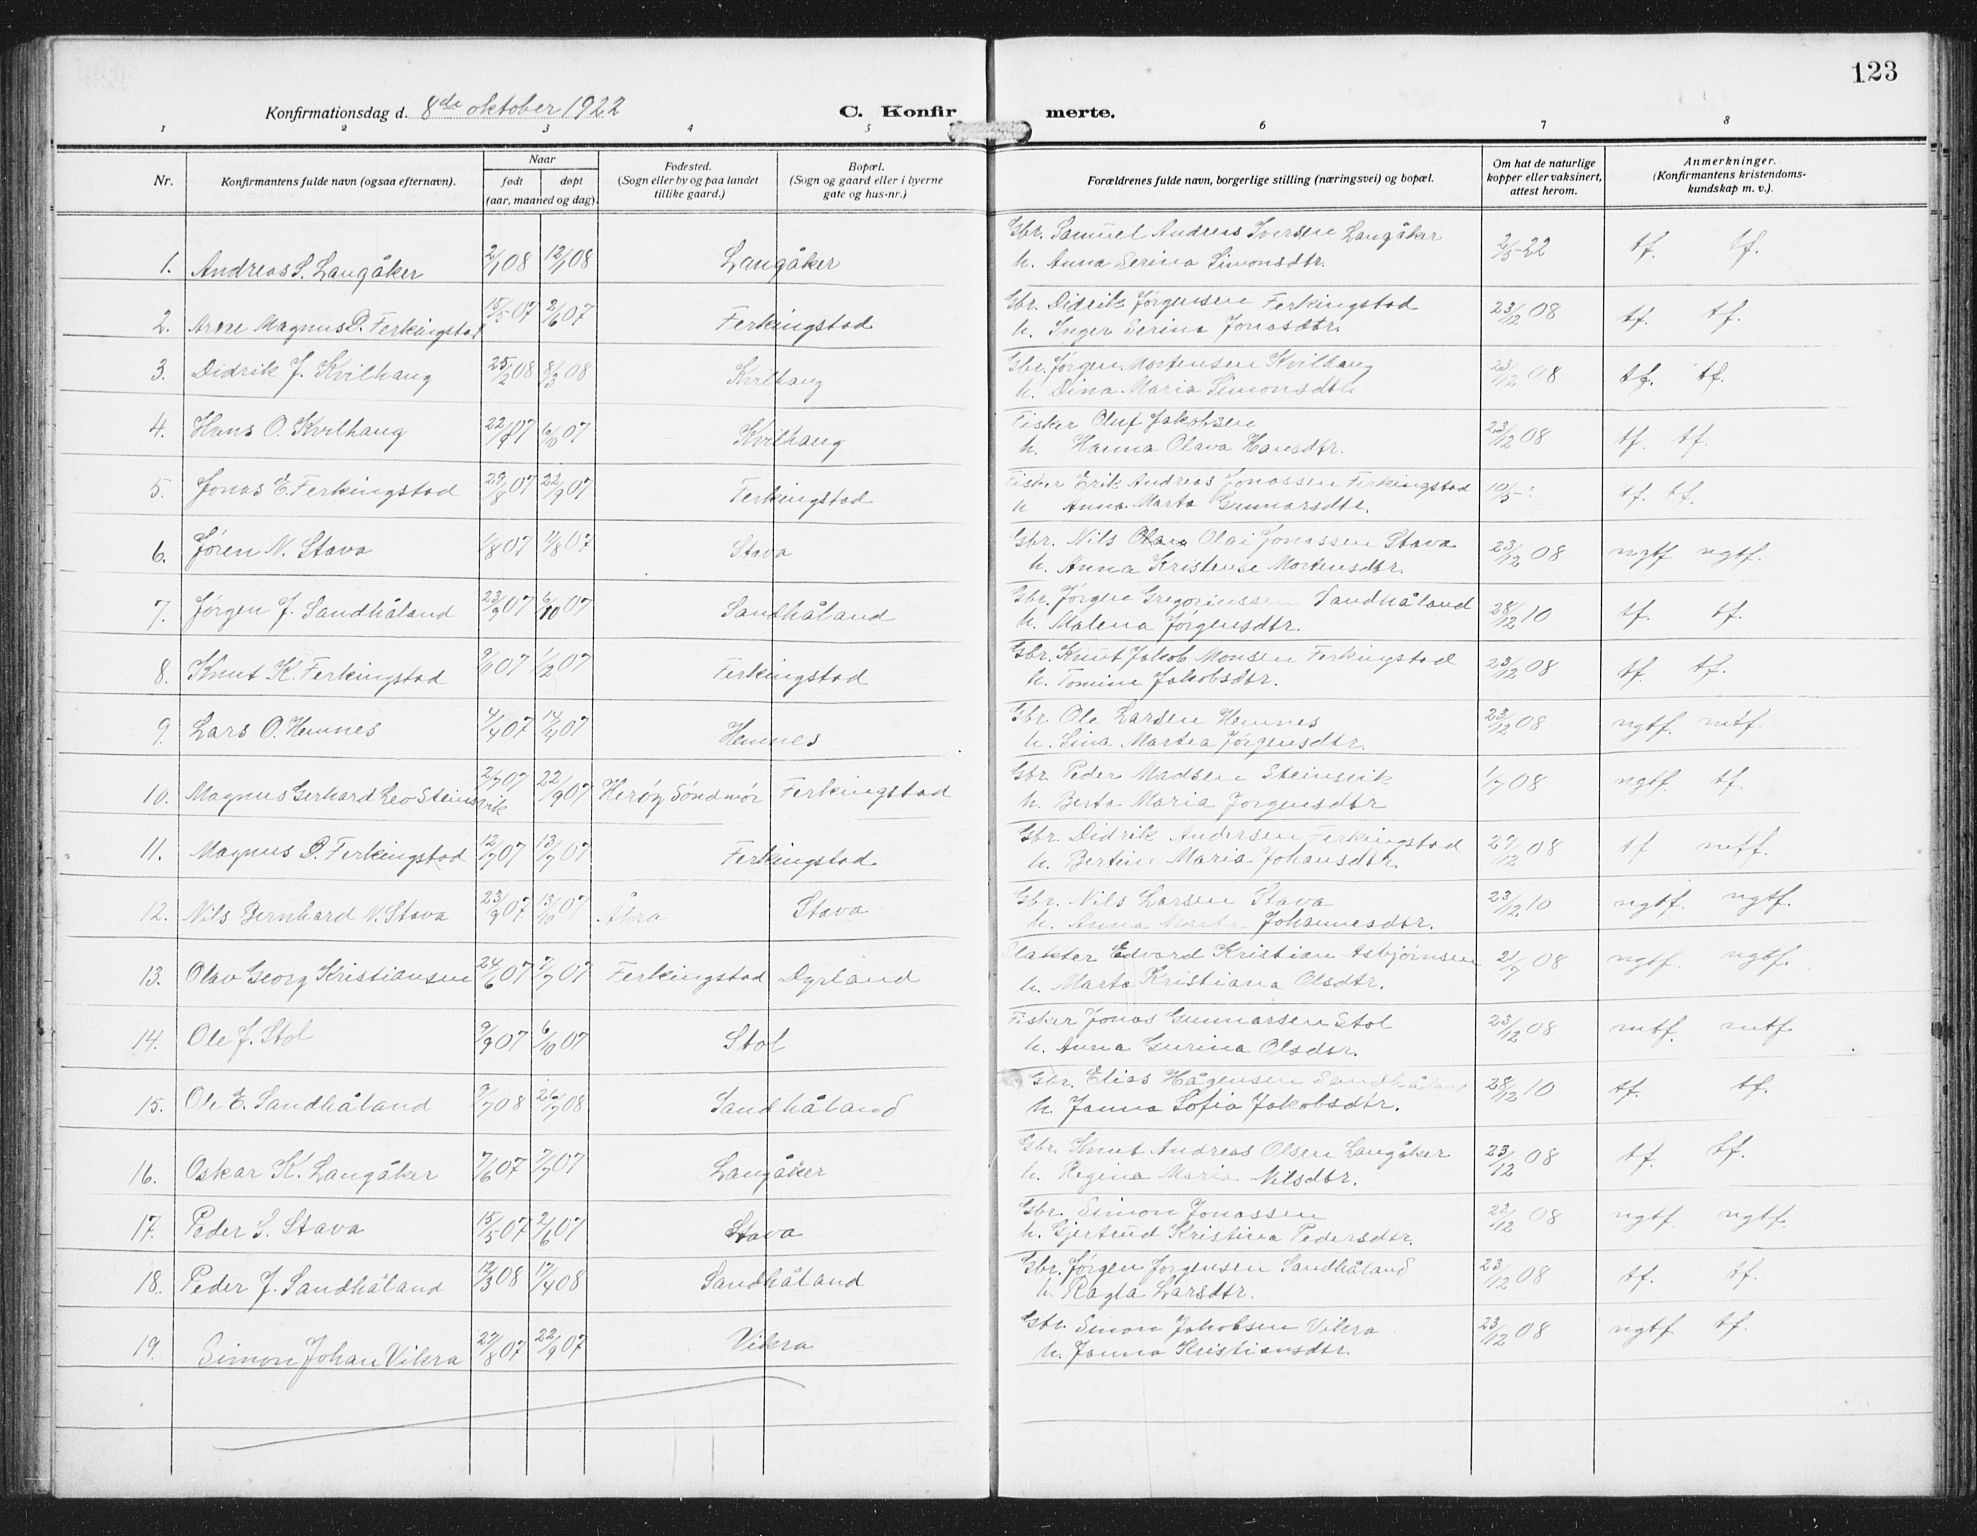 123
Konfirmationsdag d. 8de oktober 1922 C. Konfirmerte.
1 2 3 4 5 6 7 8
Nr. Konfirmantens fulde navn (ogsaa efternavn). Naar født døpt (aar, maaned og dag). Fødested. (Sogn eller by og paa landet tillike gaard.) Bopæl. (Sogn og gaard eller i byerne gate og hus-nr.) Forældrenes fulde navn, borgerlige stilling (næringsvei) og bopæl. Om hat de naturlige kopper eller vaksinert, attest herom. Anmerkninger. (Konfirmantens kristendoms-kundskap m. v.).
1. Andreas S. Langåker 2/1 08 12/1 08 Langåker Gbr. Samuel Andreas Iversen Langåker 2/5-22 tf. tf.
h. Anna Serina Simonsdtr.
2. Arne Magnus D. Ferkingstad 15/5 07 2/6 07 Ferkingstad Gbr. Didrik Jørgensen Ferkingstad 23/12 08 tf. tf.
h. Inger Serina Jonasdtr.
3. Didrik J. Kvilhaug 25/2 08 8/3 08 Kvilhaug Gbr. Jørgen Mortensen Kvilhaug 23/12 08 tf. tf.
h. Dina Maria Simonsdtr.
4. Hans O. Kvilhaug 22/9 07 6/10 07 Kvilhaug Fisker Oluf Jakobsen 23/12 08 tf. tf.
h. Hanna Olava Hansdtr.
5. Jonas E. Ferkingstad 29/8 07 22/9 07 Ferkingstad Fisker Erik Andreas Jonassen Ferkingstad 10/5 tf. tf.
h Anna Marta Gunnarsdtr.
6. Jøren N. Stava 1/8 07 11/8 07 Stava Gbr. Nils Olai Jonassen Stava 23/12 08 ngtf ngtf.
h. Anna Kristense Mortensdtr.
7. Jørgen J. Sandhåland 23/9 07 6/10 07 Sandhåland Gbr. Jørgen Gregoriussen Sandhåland 28/12 10 tf. tf.
h. Malena Jørgensdtr.
8. Knut K. Ferkingstad 07 1/12 07 Ferkingstad Gbr. Knut Jakob Monsen Ferkingstad 23/12 08 tf. tf.
h. Tomine Jakobsdtr.
9. Lars O. Hemnes 4/4 07 14/4 07 Hemnes Gbr Ole Larsen Hemnes 23/12 08 ngtf. mtf.
h. Sina Martea Jørgensdtr.
10. Magnus Gerhard Leo Steinsvik 2/7 07 22/9 07 Herøy Söndmör Ferkingstad Gbr Peder Madsen Steinsvik 1/7 08 ngtf. tf.
h. Berta Maria Jørgensdtr
11. Magnus D. Ferkingstad 12/7 07 13/7 07 Ferkingstad Gbr. Didrik Andersen Ferkingstad 29/12 08 tf mtf.
h. Bertine Maria Johansdtr.
12. Nils Bernhard N. Stava 23/9 07 13/10 07 Åkra Stava Gbr. Nils Larsen Stava 23/12 10 ngtf. ngtf.
h. Anna Marta Johannesdtr.
13. Olav Georg Kristiansen 24/6 07 7/7 07 Ferkingstad Dyrland Slakter Edvard Kristian Asbjørnsen 21/7 08 ngtf. ngtf.
h. Marta Kristiana Olsdtr.
14. Ole J. Stol 9/9 07 6/10 07 Stol Fisker Jonas Gunnarsen Stol 23/12 08 mtf. mtf.
h. Anna Gurina Olsdtr.
15. Ole E. Sandhåland 9/7 08 26/7 08 Sandhåland Gbr. Elias Hågensen Sandhåland 28/12 10 tf. tf.
h. Janna Sofia Jakobsdtr.
16. Oskar K. Langåker 7/6 07 7/7 07 Langåker Gbr. Knut Andreas Olsen Langåker 23/12 08 tf. tf.
h. Regine Maria Nilsdtr.
17. Peder S. Stava 15/5 07 2/6 07 Stava Gbr. Simon Jonassen 23/12 08 ngtf. ngtf.
h. Gjertrud Kristina Pedersdtr.
18. Peder J. Sandhåland 12/3 08 17/4 08 Sandhåland Gbr. Jørgen Jørgensen Sandhåland 23/12 08 tf. tf.
h. Ragla Larsdtr.
19. Simon Johan Vikra 29/8 07 22/9 07 Vikra Gbr. Simon Jakobsen Vikra 23/12 08 ngtf. tf.
h. Janna Kristiansdtr.